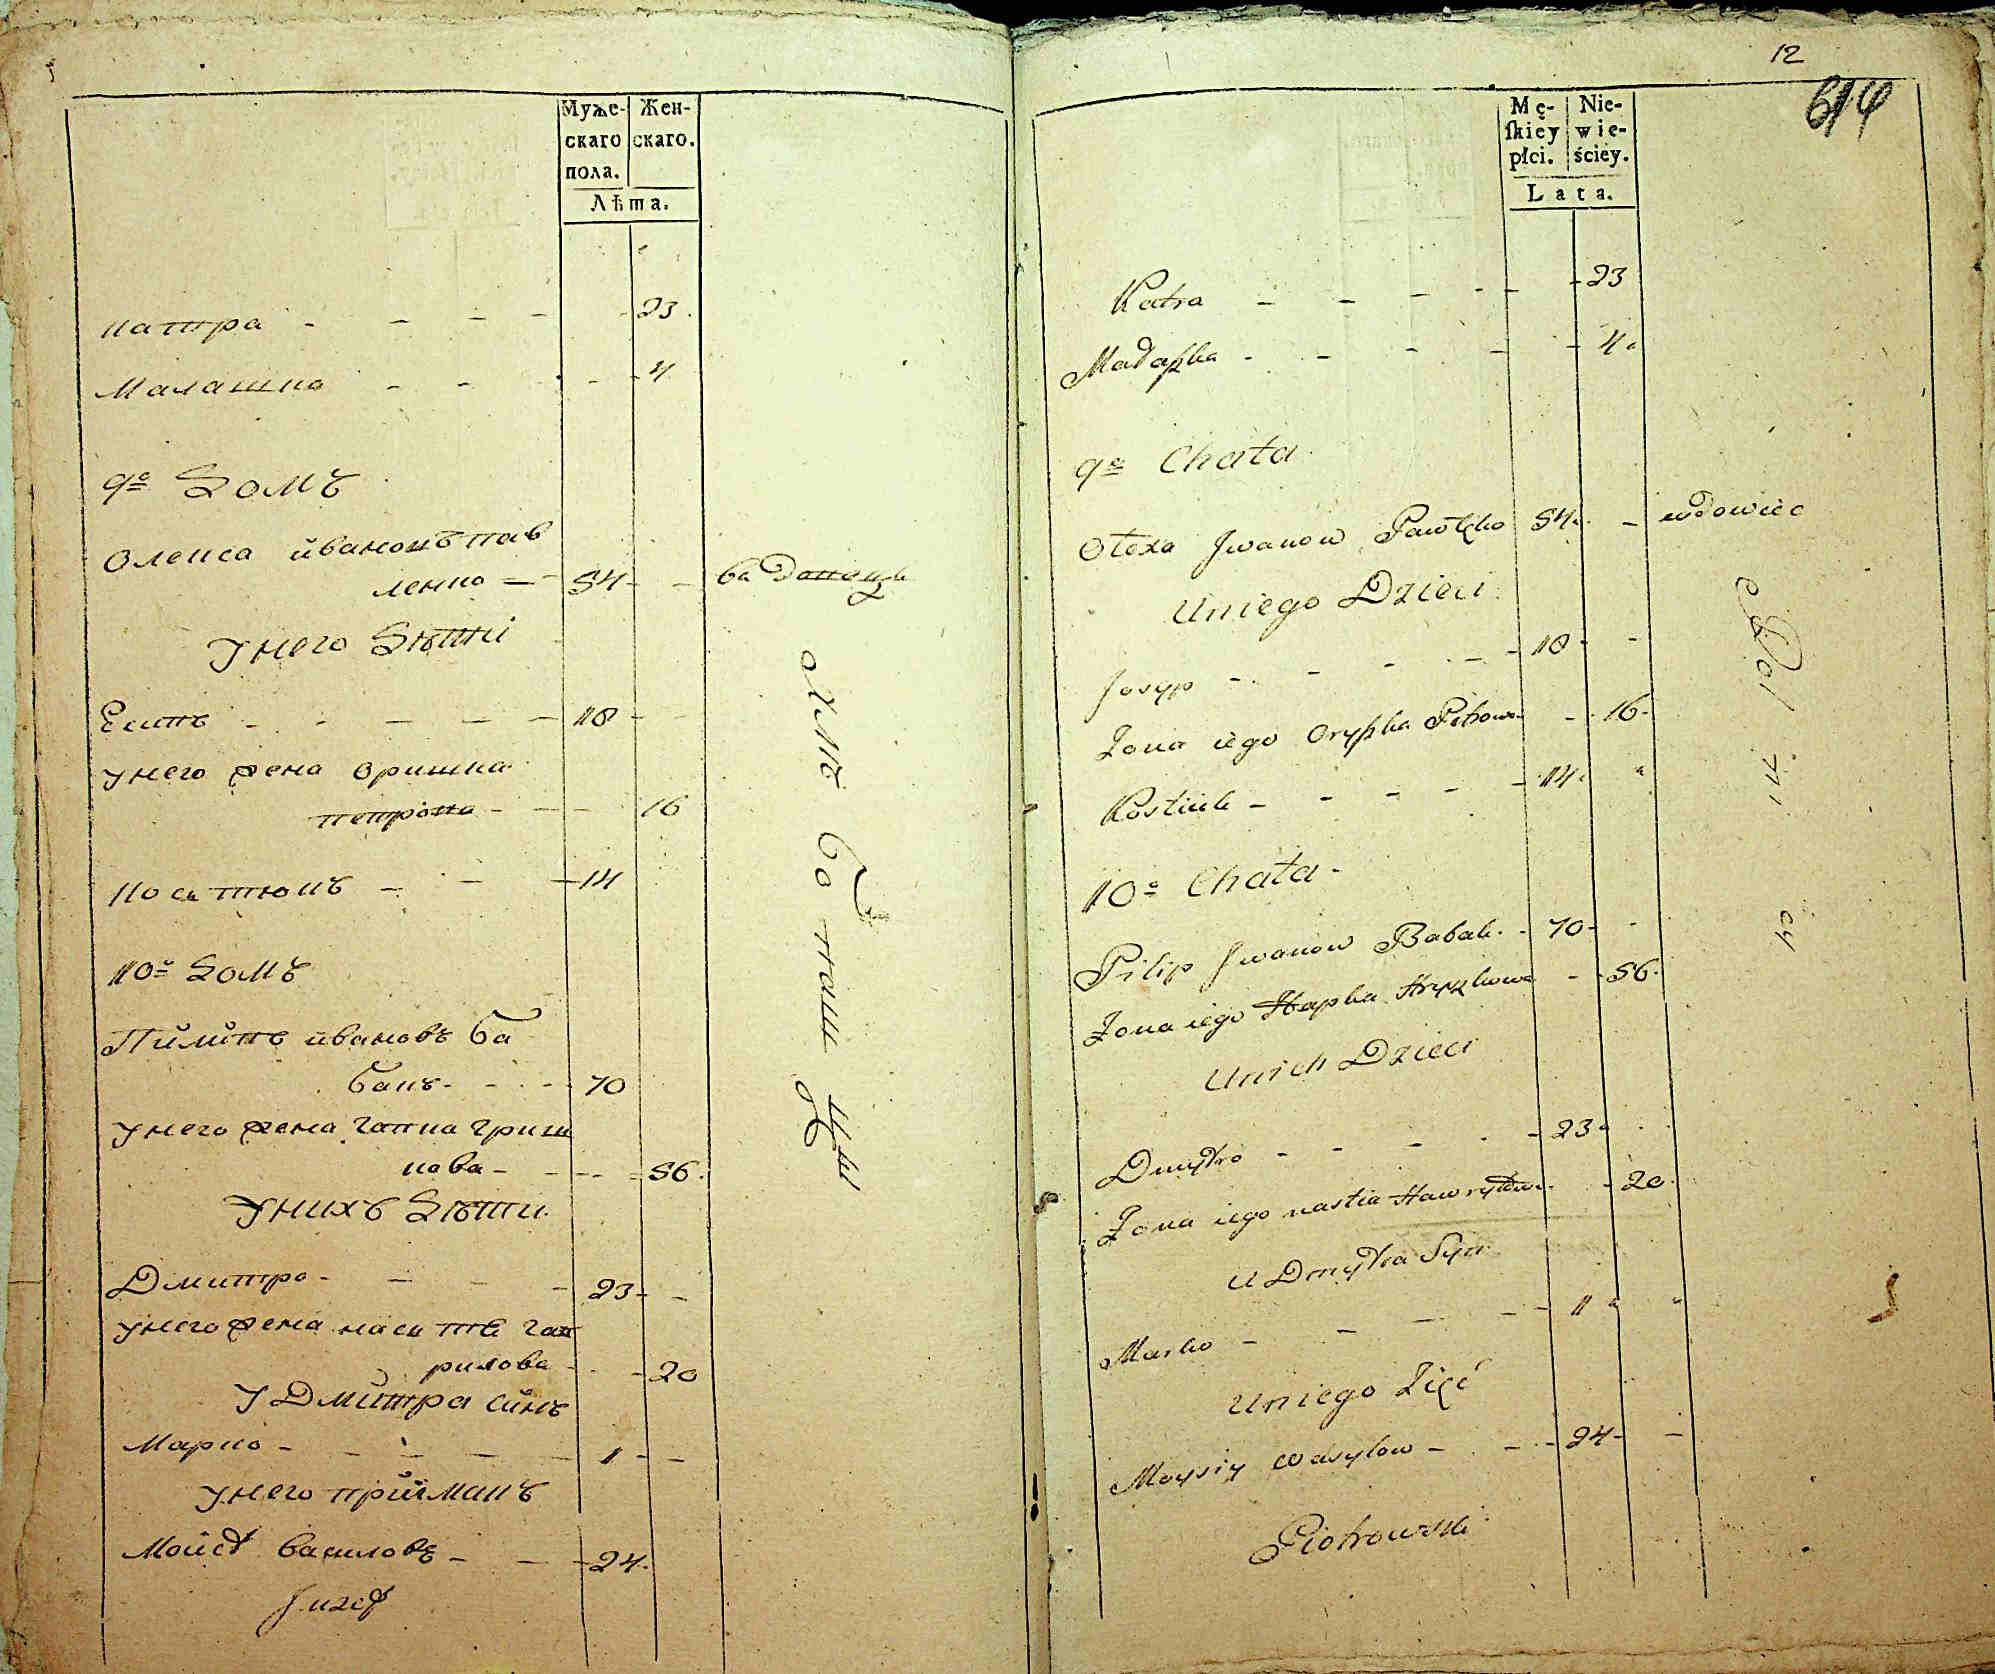 Муже-
скаго
пола.
Жен-
скаго.
Лѣта.
Катра - - - - - 23
Малашка - - - - 4
9е Домъ
Олекса Ивановъ Пав
ленко - 54 - -
У него Дѣти
Есипъ - - - - - 18 - -
У него жена Оришка
Петрова - - - 16
Костюкъ - - - 14
10е Домъ
Пилипъ Ивановъ Ба
бакъ - - - 70
У него жена Гапка Гриш
кова - - - - 56
У нихъ Дѣти
Дмитро - - - - 23 - -
У него жена Настя Гав
рилова - - - 20
У Дмитра Синъ
Марко - - - - - 1 - -
У него приймакъ
Мойсѣй Василовъ - - - 24
Juzef
12
614
Mę-
ſkiey
płci.
Nie-
wie-
ściey.
Lata.
Katra - - - - - - 23
Małaszka - - - - - 4
9a Chata
Ołexa Iwanow Pawłęko 54 - wdowiec
U niego Dzieci
Josyp - - - - - 18 - -
Żona iego Oryszka Petrowa - 16
Kostiuk - - - - - 14
10a Chata
Pilip Iwanow Babak - 70 -
Żona iego Hapka Hryszkowa - - 56
U nich Dzieci
Dmytro - - - - - 23
Żona iego Nastia Hawryłowa - 20
U Dmytra Syn
Marko - - - - - 1
U niego Zięć
Moysiy Wasylow - - - 24 - -
Piotrowski